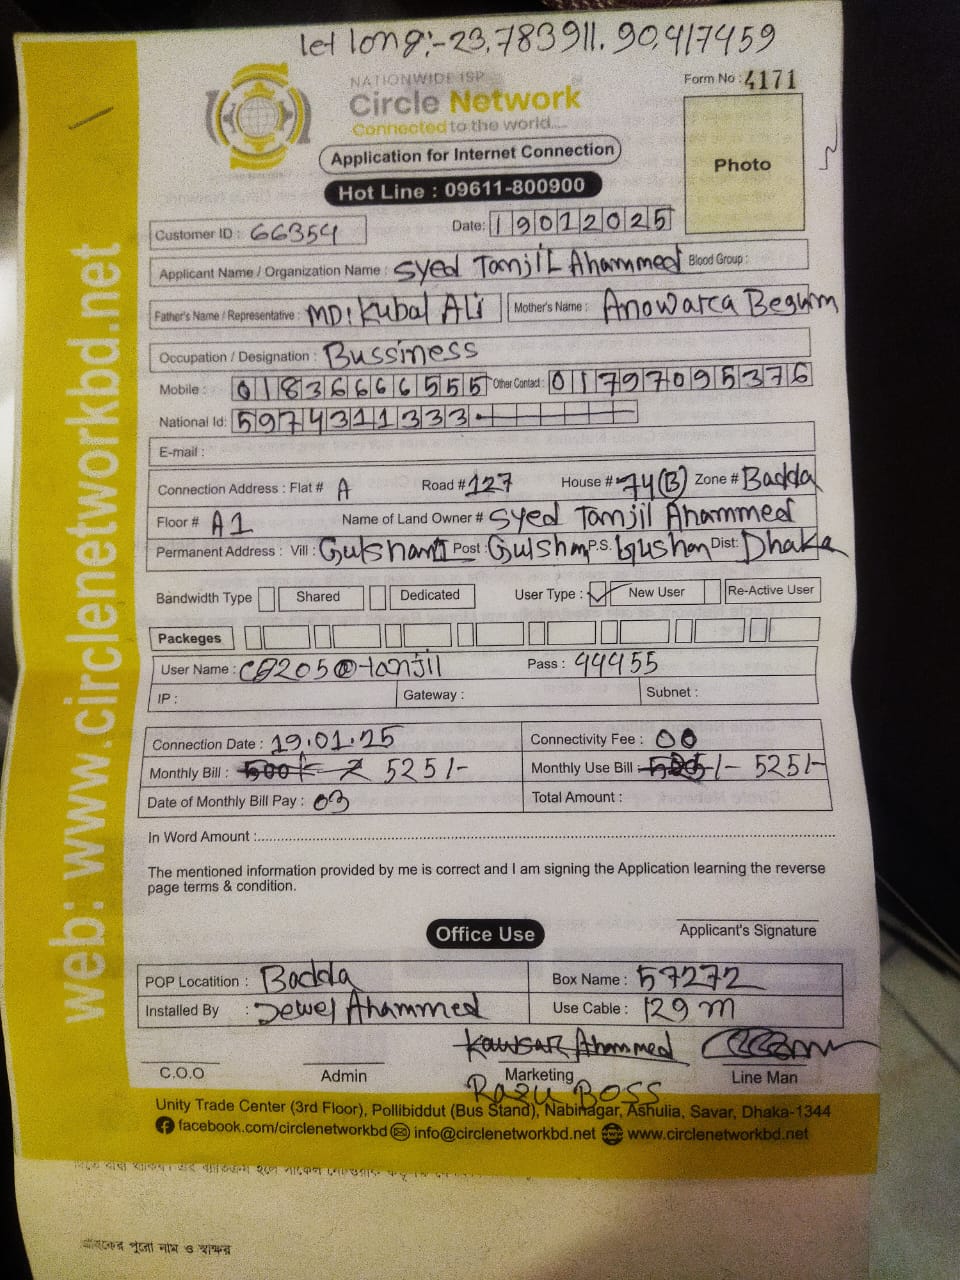 let long:-23.783911, 90.417459
NATIONWIDE ISP
Circle Network
Connected to the world....
Form No : 4171
Photo
Application for Internet Connection
Hot Line : 09611-800900
Customer ID : 66354
Date: 19012025
Applicant Name / Organization Name : Syed Tanjil Ahammed Blood Group :
Father's Name / Representative : MD: Kubal Ali Mother's Name : Anowarca Begum
Occupation / Designation : Bussiness
Mobile : 01836666555 Other Contact : 01797095376
National Id: 5974311333
E-mail :
Connection Address : Flat # A Road # 127 House # 74(B) Zone # Badda
Floor # A1 Name of Land Owner # Syed Tanjil Ahammed
Permanent Address : Vill : Gulshan1 Post : Gulshan P.S. Gushan Dist: Dhaka
Bandwidth Type Shared Dedicated User Type : New User Re-Active User
Packeges
User Name : @tanjil Pass : 44455
IP : Gateway : Subnet :
Connection Date : 19.01.25 Connectivity Fee : 00
Monthly Bill : 500 525/- Monthly Use Bill : /- 525/-
Date of Monthly Bill Pay : 03 Total Amount :
In Word Amount :
The mentioned information provided by me is correct and I am signing the Application learning the reverse
page terms & condition.
Applicant's Signature
Office Use
POP Locatition : Badda Box Name : 57272
Installed By : Jewel Ahammed Use Cable : 129 m
Kawsar Ahammed
C.O.O Admin Marketing Line Man
Razu Boss
Unity Trade Center (3rd Floor), Pollibiddut (Bus Stand), Nabinagar, Ashulia, Savar, Dhaka-1344
facebook.com/circlenetworkbd info@circlenetworkbd.net www.circlenetworkbd.net
web: www.circlenetworkbd.net
পুরো নাম ও স্বাক্ষর